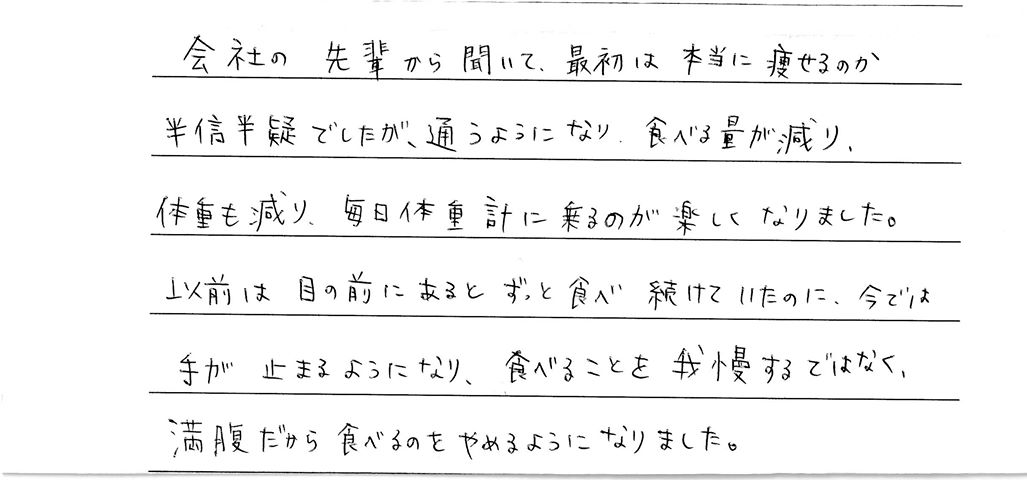 会社の先輩から聞いて、最初は本当に痩せるのか
半信半疑でしたが、通うようになり、食べる量が減り、
体重も減り、毎日体重計に乗るのが楽しくなりました。
以前は目の前にあるとずっと食べ続けていたのに、今では
手が止まるようになり、食べることを我慢するではなく、
満腹だから食べるのをやめるようになりました。